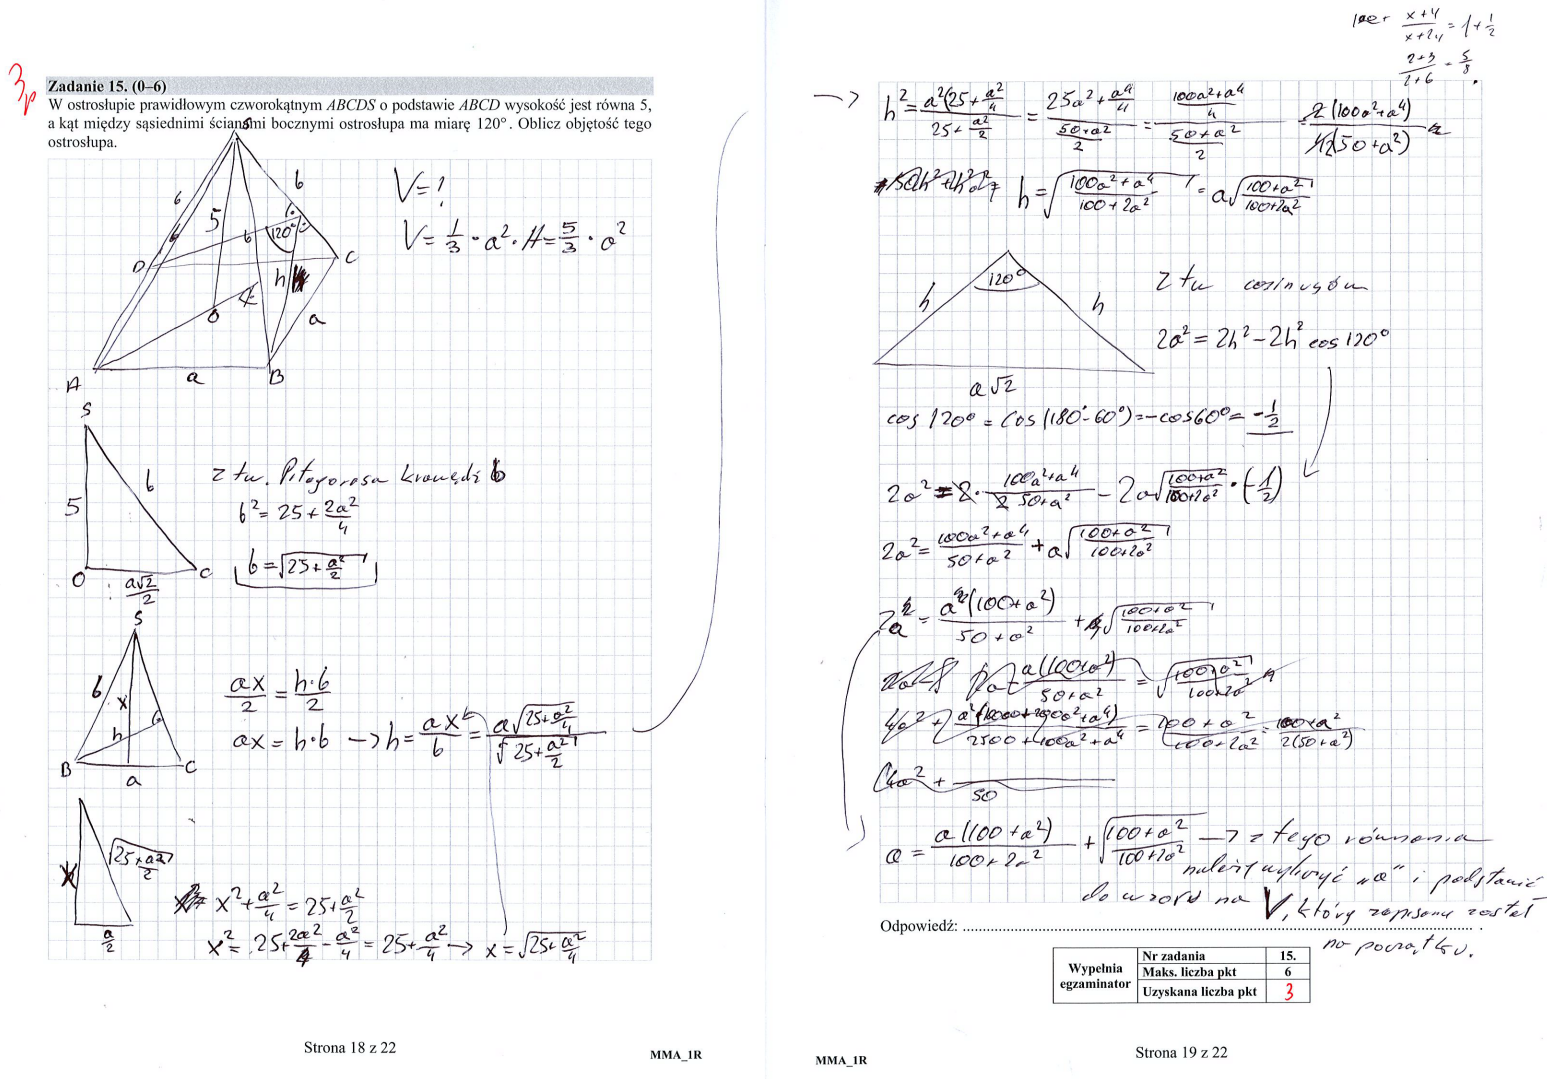 3p
Zadanie 15. (0–6)
W ostrosłupie prawidłowym czworokątnym ABCDS o podstawie ABCD wysokość jest równa 5,
a kąt między sąsiednimi ścianami bocznymi ostrosłupa ma miarę 120°. Oblicz objętość tego
ostrosłupa.
S
b
b
5
b
120°
D
C
h
O
a
A
a
B
V = ?
V = 1/3 · a² · H = 5/3 · a²
S
5
b
O
a√2/2
C
z tw. Pitagorasa krawędź b
b² = 25 + 2a²/4
b = √(25 + a²/2)
S
b
x
h
B
C
a
ax/2 = h·b/2
ax = h·b → h = ax/b = a√(25 + a²/4) / √(25 + a²/2)
x
√(25 + a²/2)
a/2
x² + a²/4 = 25 + a²/2
x² = 25 + 2a²/4 − a²/4 = 25 + a²/4 → x = √(25 + a²/4)
Strona 18 z 22
MMA_1R
(x+4)/(x+24) = 1 + 1/2
(2+3)/(2+6) = 5/8
→ h² = a²(25 + a²/4) / (25 + a²/2) = (25a² + a⁴/4) / ((50+a²)/2) = ((100a²+a⁴)/4) / ((50+a²)/2) = 2(100a²+a⁴) / 4(50+a²)
h = √((100a²+a⁴)/(100+2a²)) = a√((100+a²)/(100+2a²))
120°
h
h
a√2
z tw cosinusów
2a² = 2h² − 2h² cos 120°
cos 120° = cos(180° − 60°) = −cos60° = −1/2
2a² = 2 · (100a²+a⁴)/(2 50+a²) − 2a√((100+a²)/(100+2a²)) · (−1/2)
2a² = (100a²+a⁴)/(50+a²) + a√((100+a²)/(100+2a²))
2a = a(100+a²)/(50+a²) + √((100+a²)/(100+2a²))
4a² +
50
a = a(100+a²)/(100+2a²) + √((100+a²)/(100+2a²)) → z tego równania
należy wyliczyć „a" i podstawić
do wzoru na V, który zapisany został
na początku.
Odpowiedź:
Wypełnia egzaminator
Nr zadania 15.
Maks. liczba pkt 6
Uzyskana liczba pkt 3
Strona 19 z 22
MMA_1R